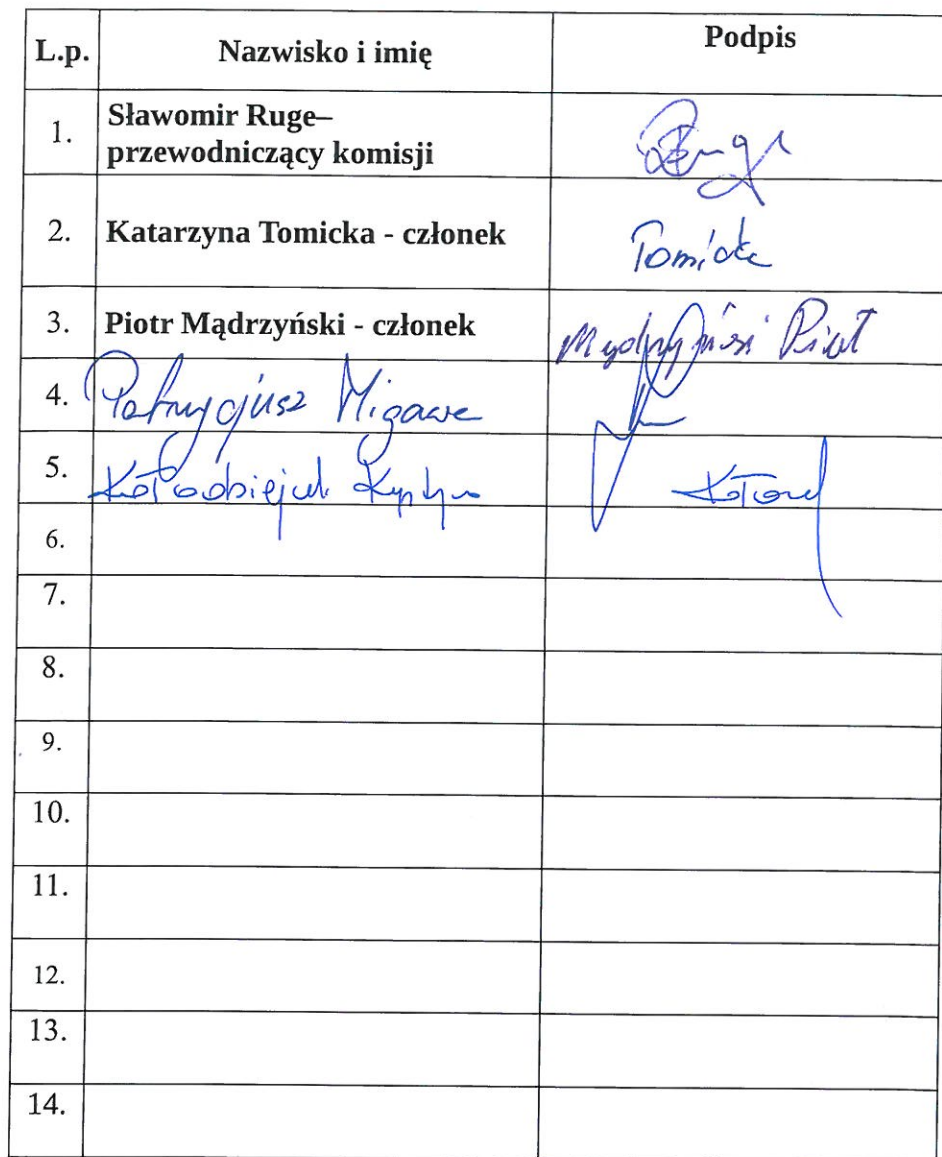 L.p. Nazwisko i imię Podpis
1. Sławomir Ruge–
przewodniczący komisji
2. Katarzyna Tomicka - członek Tomicka
3. Piotr Mądrzyński - członek Mądrzyński Piotr
4. Patrycjusz Migawa
5. Kołodziejczak
6.
7.
8.
9.
10.
11.
12.
13.
14.